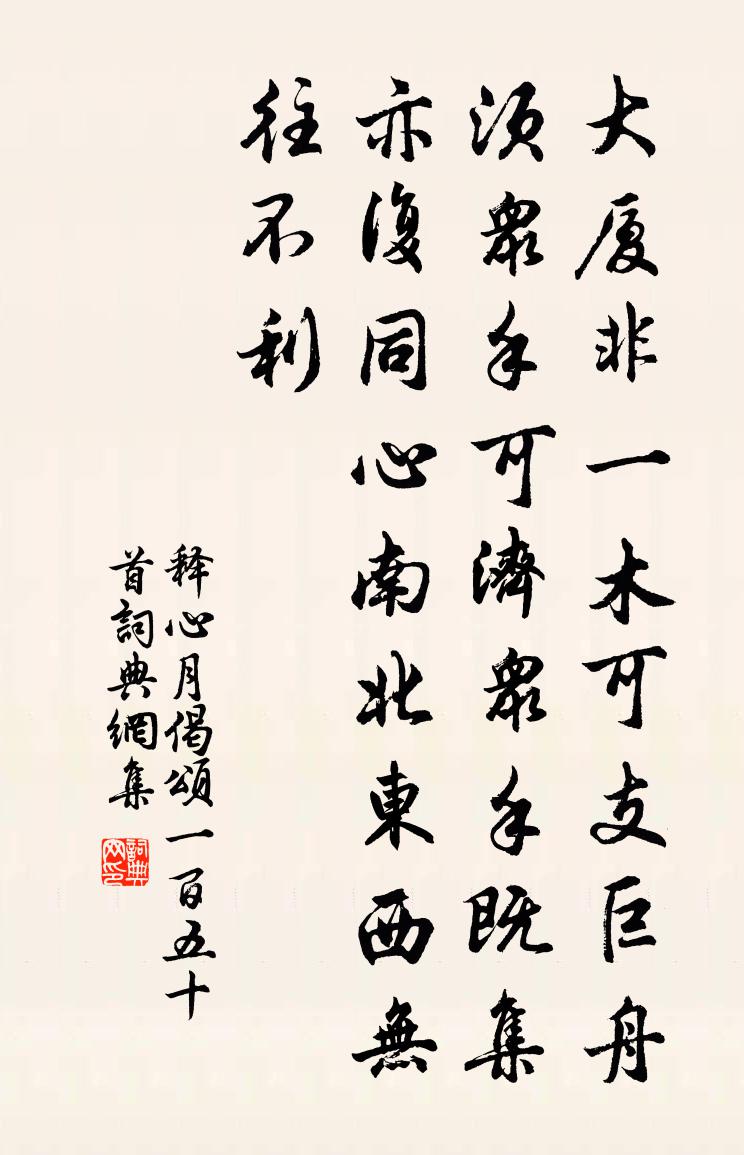 大厦非一木可支巨舟
須眾手可濟眾手既集
亦復同心南北東西無
往不利
释心月偈頌一百五十
首詞典網集
詞典网印